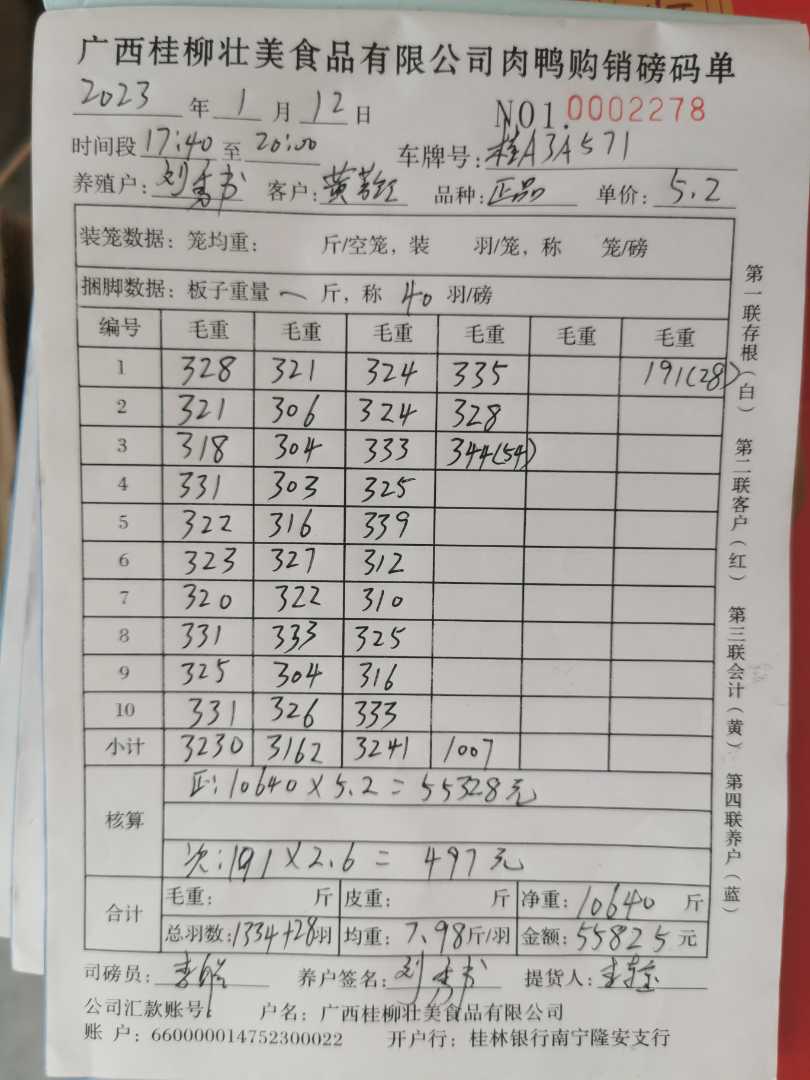 广西桂柳壮美食品有限公司肉鸭购销磅码单
2023 年 1 月 12 日 NO1. 0002278
时间段 17:40 至 20:00 车牌号: 桂A3A571
养殖户: 刘 书 客户: 黄 品种: 正品 单价: 5.2
装笼数据: 笼均重: 斤/空笼, 装 羽/笼, 称 笼/磅
捆脚数据: 板子重量 一 斤, 称 40 羽/磅
编号 毛重 毛重 毛重 毛重 毛重 毛重
1 328 321 324 335 191(28)
2 321 306 324 328
3 318 304 333 344(54)
4 331 303 325
5 322 316 339
6 323 327 312
7 320 322 310
8 331 333 325
9 325 304 316
10 331 326 333
小计 3230 3162 3241 1007
核算
正: 10640 X 5.2 = 55328元
次: 191 X 2.6 = 497元
合计
毛重: 斤 皮重: 斤 净重: 10640 斤
总羽数: 1334+28羽 均重: 7.98斤/羽 金额: 55825元
司磅员: 李 养户签名: 刘 书 提货人:
公司汇款账号: 户名: 广西桂柳壮美食品有限公司
账 户: 660000014752300022 开户行: 桂林银行南宁隆安支行
第一联存根(白) 第二联客户(红) 第三联会计(黄) 第四联养户(蓝)